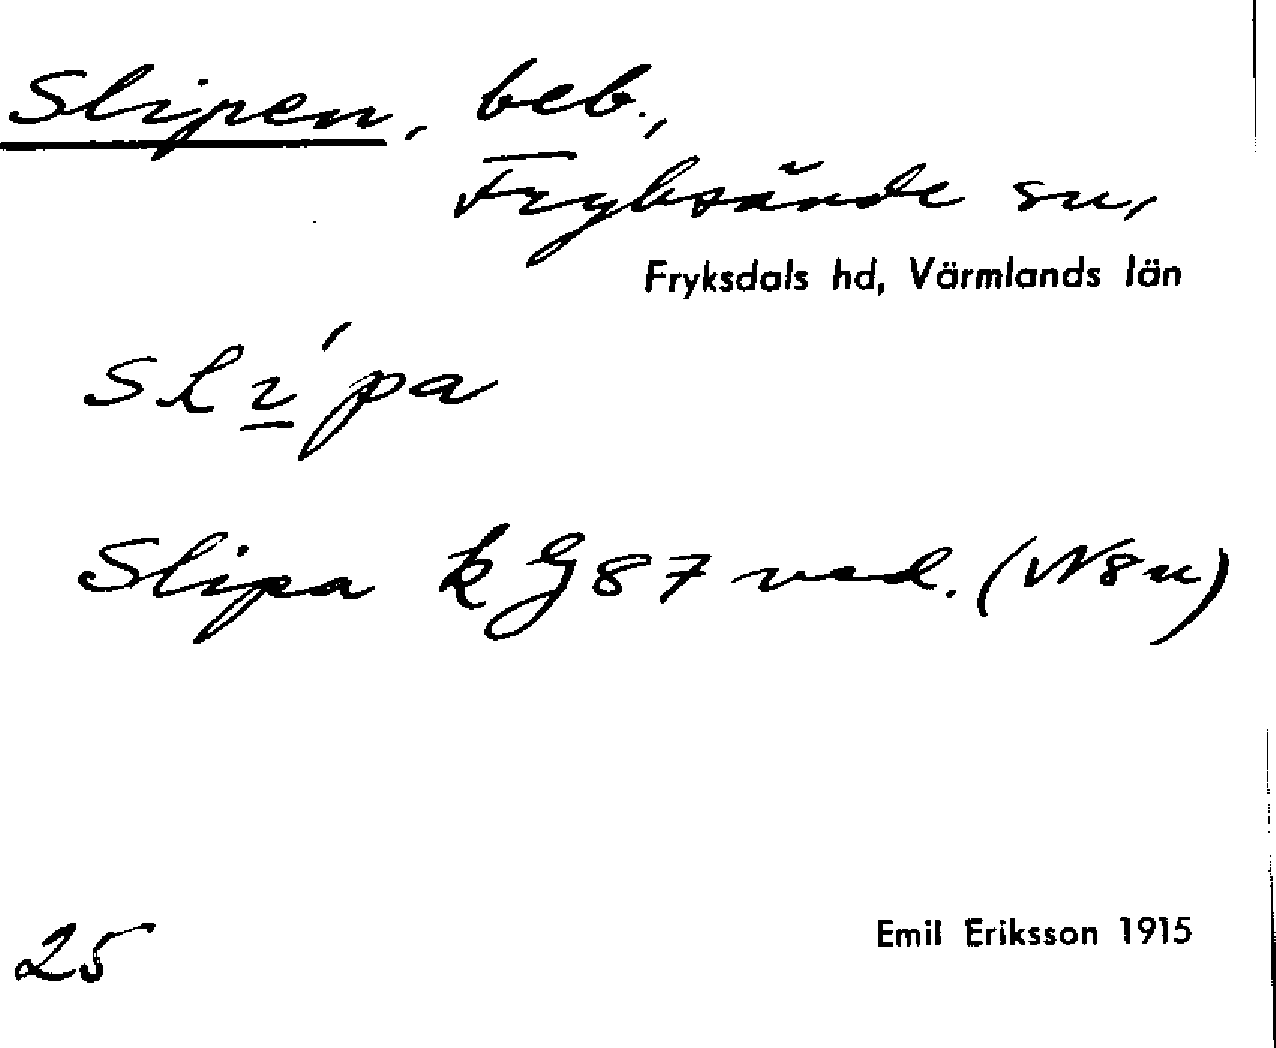 Slipen, beb.,
Fryksände sn,
Fryksdals hd, Värmlands län
slı̱́pa
Slipa k G 87 vsd. (W8u)
25
Emil Eriksson 1915